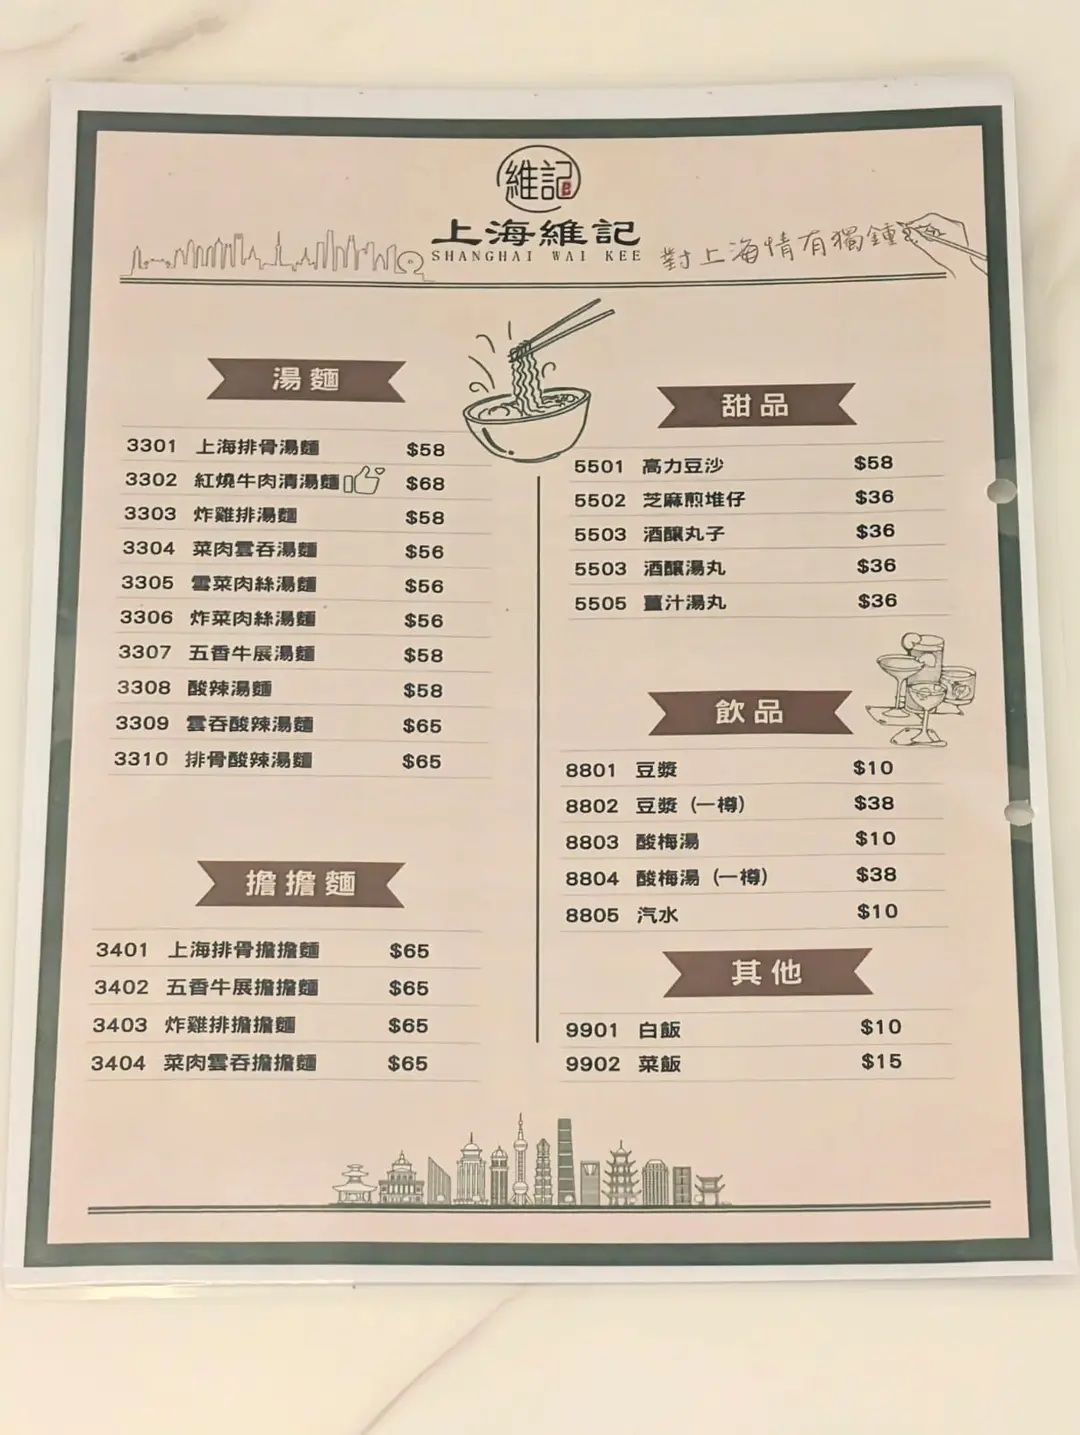 維記
上海維記
SHANGHAI WAI KEE
對上海情有獨鍾
湯麵
3301 上海排骨湯麵 $58
3302 紅燒牛肉清湯麵 $68
3303 炸雞排湯麵 $58
3304 菜肉雲吞湯麵 $56
3305 雪菜肉絲湯麵 $56
3306 炸菜肉絲湯麵 $56
3307 五香牛展湯麵 $58
3308 酸辣湯麵 $58
3309 雲吞酸辣湯麵 $65
3310 排骨酸辣湯麵 $65
擔擔麵
3401 上海排骨擔擔麵 $65
3402 五香牛展擔擔麵 $65
3403 炸雞排擔擔麵 $65
3404 菜肉雲吞擔擔麵 $65
甜品
5501 高力豆沙 $58
5502 芝麻煎堆仔 $36
5503 酒釀丸子 $36
5503 酒釀湯丸 $36
5505 薑汁湯丸 $36
飲品
8801 豆漿 $10
8802 豆漿（一樽） $38
8803 酸梅湯 $10
8804 酸梅湯（一樽） $38
8805 汽水 $10
其他
9901 白飯 $10
9902 菜飯 $15